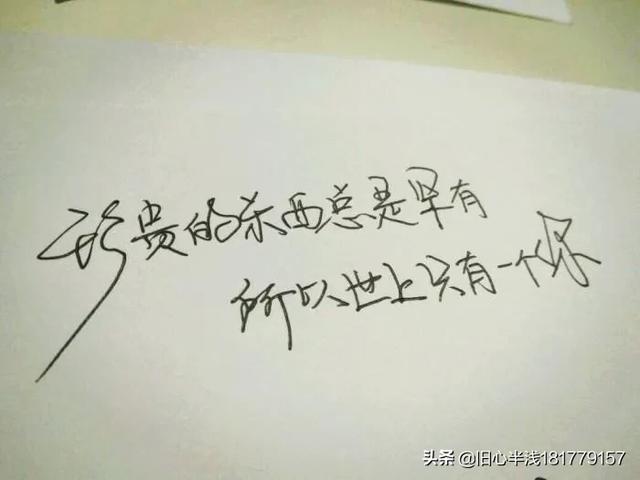 珍贵的东西总是罕有
所以世上只有一个你
头条 @旧心半浅181779157